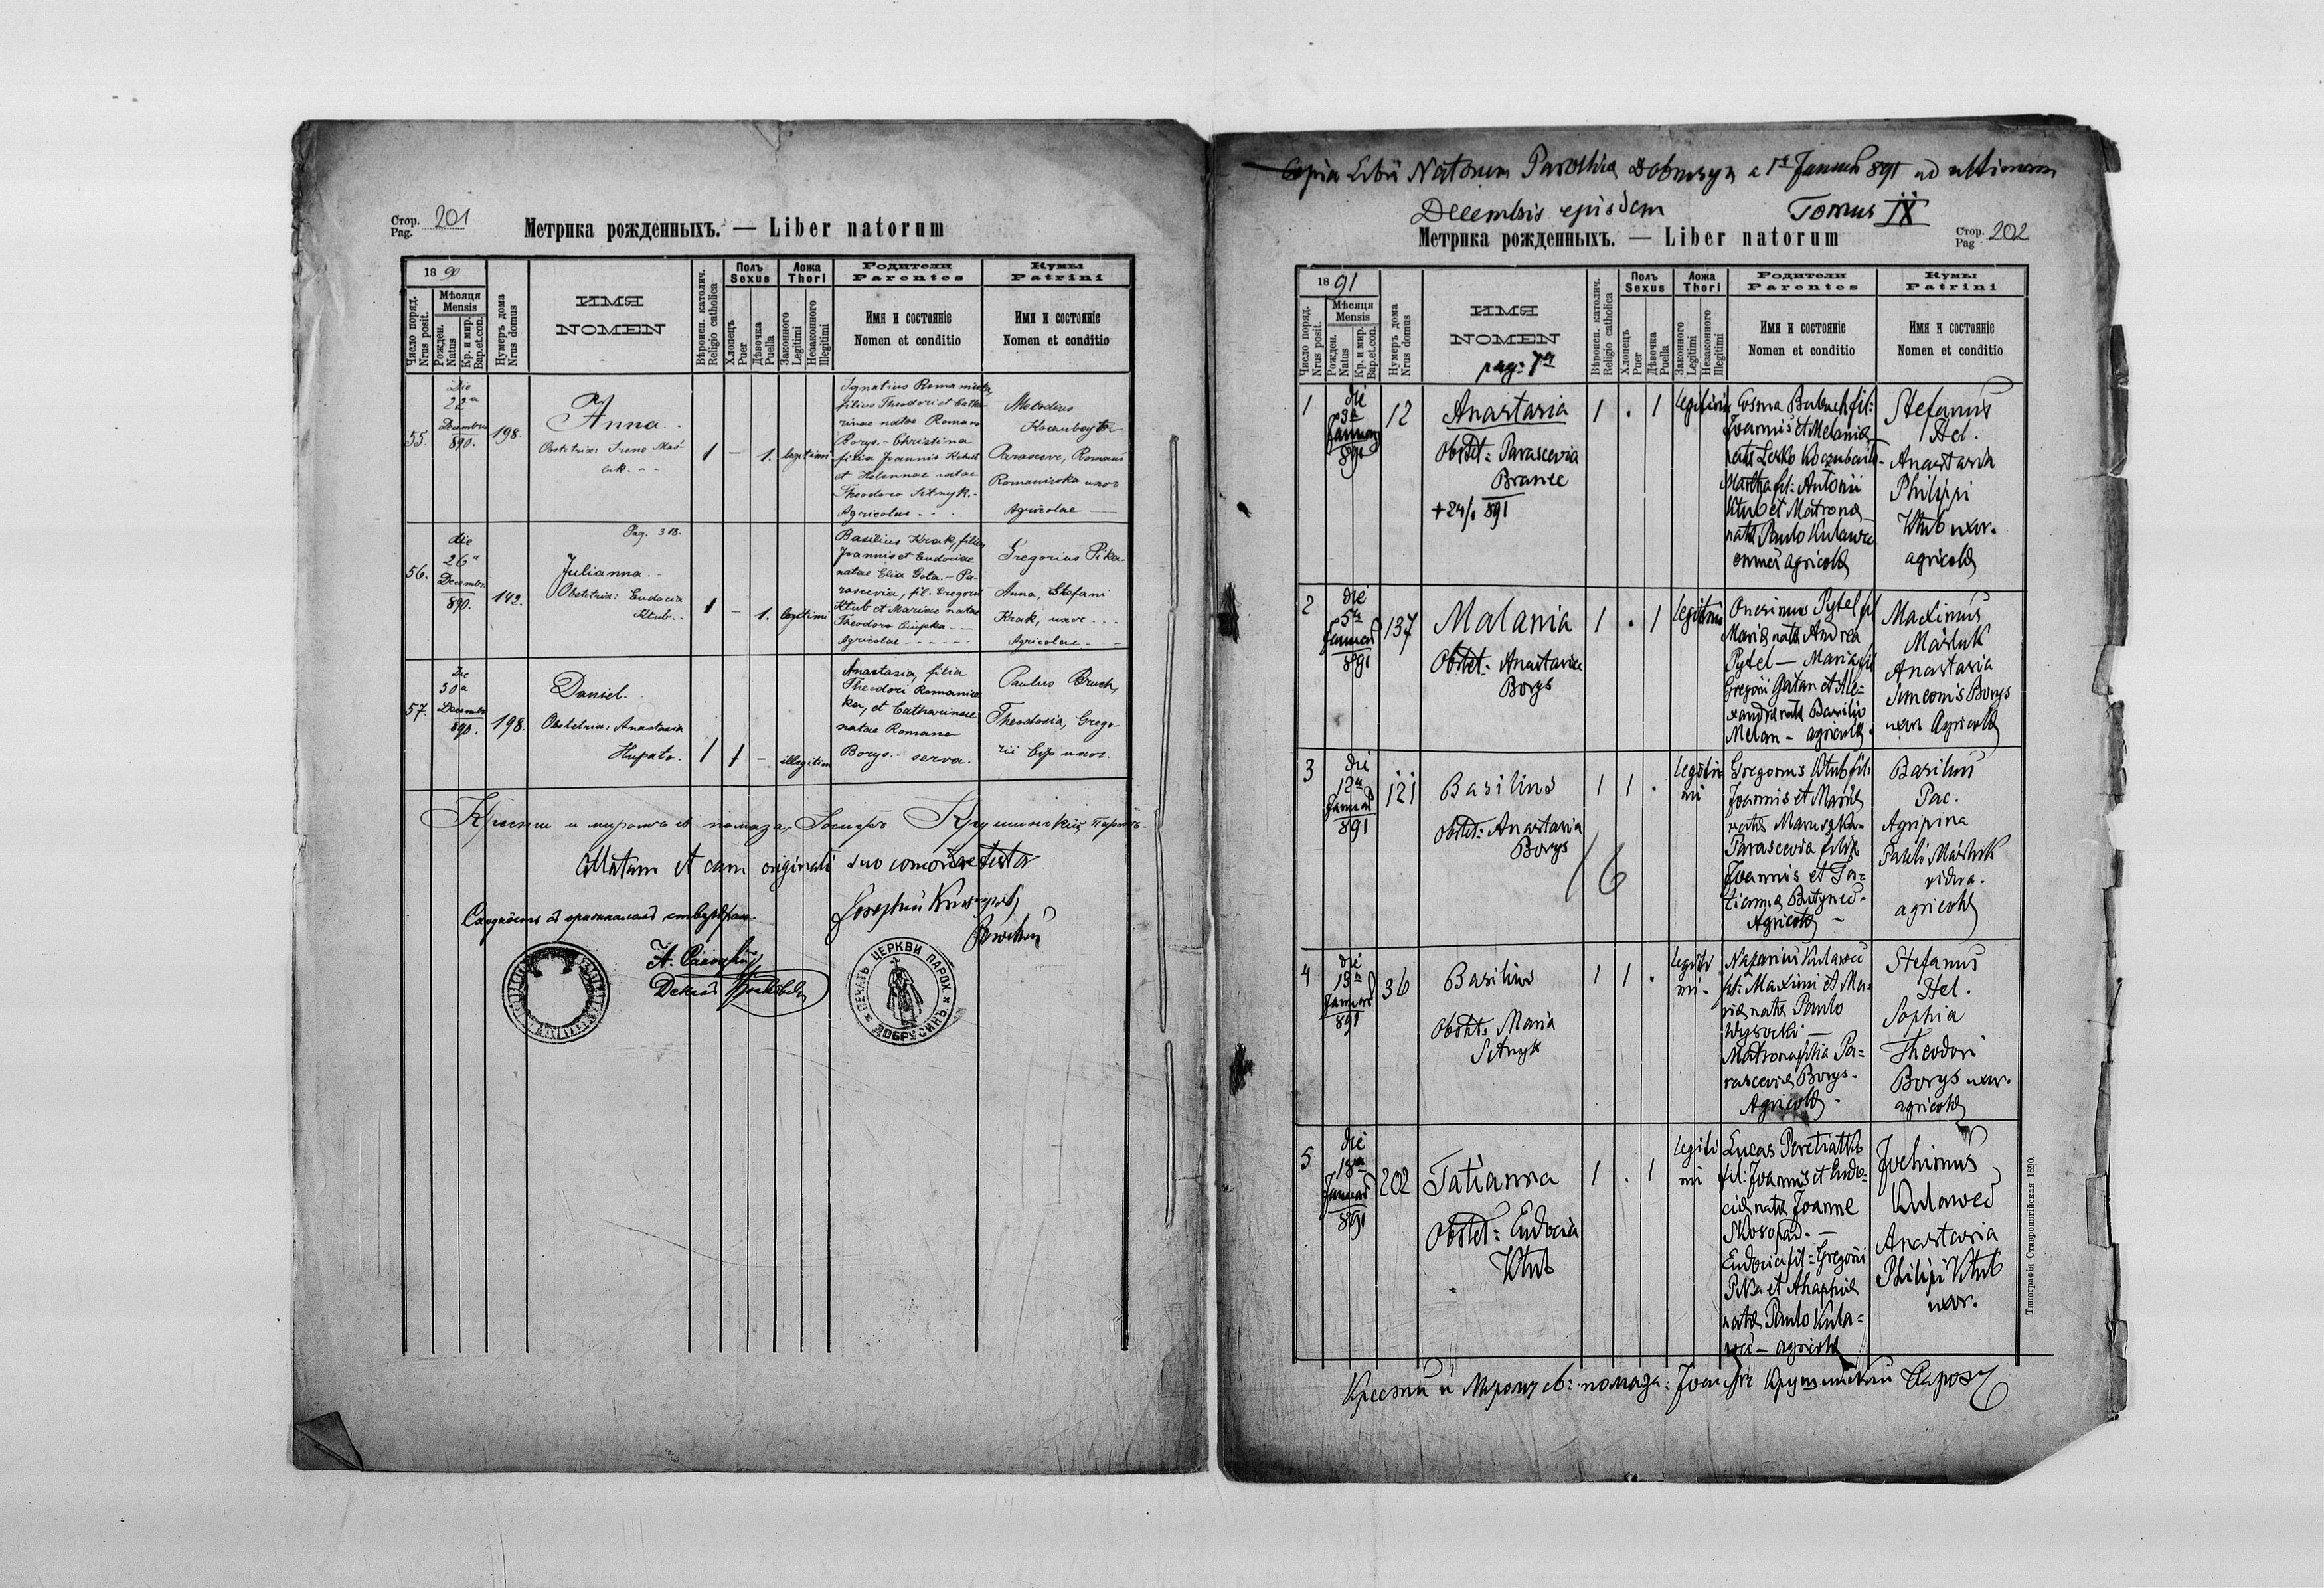 Стор. Pag. 201
Метрика рожденныхъ. — Liber natorum
1890
Число поряд. Nrus posit.
Мѣсяця Mensis
Рожден. Natus
Кр. и мир. Bap.et.con.
Нумеръ дома Nrus domus
ИМЯ
NOMEN
Вѣроисп. католич. Religio catholica
Полъ Sexus
Хлопецъ Puer
Дѣвочка Puella
Ложа Thori
Законного Legitimi
Незаконного Illegitimi
Родители Parentes
Имя и состояніе
Nomen et conditio
Кумы Patrini
Имя и состояніе
Nomen et conditio
55.
Die
22a
Decembris
890.
198.
Anna.
Obstetrix: Irene
1 — 1. legitimi
Ignatius Romaniwka,
filius Theodori et Catha-
rinae natae Romano
Borys. - Christina
filia Joannis
et Helennae natae
Theodoro Sitnyk. -
Agricolae
Metodius
Parasceve, Romani
Romaniwka uxor
Agricolae
56.
die
26a
Decembr.
890.
142.
Pag. 318.
Julianna. -
Obstetrix: Eudocia
Ktub.
1 — 1. legitimi
Basilius Krak, filius
Joannis et Eudociae
natae Elia Gota. - Pa-
rascevia, fil. Gregorii
Ktub et Mariae natae
Theodoro
Agricolae
Gregorius Pika
Anna, Stefani
Krak, uxor
Agricolae
57.
Die
30a
Decembr.
890.
198.
Daniel.
Obstetrix: Anastasia
Hupato.
1 1 — illegitimi
Anastasia, filia
Theodori Romaniw-
ka, et Catharinae
natae Romano
Borys. - serva.
Paulus Bruch,
Theodosia, Grego-
rii Cip uxor.
Крести и миромъ св помаза, Іосифъ Крушинскій Парохъ
cum originali suo
ПЕЧАТЬ ЦЕРКВИ ПАРОХ ДОБРУСИНЪ
Copia Libri Natorum Parochia Dobrusyn a 1a Januarii 891 ad ultimam
Decembris ejusdem Tomus IX
Метрика рожденныхъ. — Liber natorum
Стор. Pag 202
1891
Число поряд. Nrus posit.
Мѣсяця Mensis
Рожден. Natus
Кр. и мир. Bap.et.con.
Нумеръ дома Nrus domus
ИМЯ
NOMEN
pag: 7a
Вѣроисп. католич. Religio catholica
Полъ Sexus
Хлопецъ Puer
Дѣвочка Puella
Ложа Thori
Законного Legitimi
Незаконного Illegitimi
Родители Parentes
Имя и состояніе
Nomen et conditio
Кумы Patrini
Имя и состояніе
Nomen et conditio
1
die
3a
Januar
891
12
Anastasia
Obstet: Parascevia
+24/1 891
1 . 1 legitimi
Cosma Babuch fil:
Joannis et Melaniae
Martha fil: Antonii
Ktub et Matrona
natae Paulo Kulawec
omnes agricolae
Stefanus
Hel.
Anastasia
Philippi
Ktub uxor.
agricolae
2
die
5a
Januar
891
137
Malania
Obstet: Anastasia
Borys
1 . 1 legitimi
Onesimus Pytel fil
Mariae natae Andrea
Pytel — Maria fil
Gregorii Gatan et Ale-
xandra natae Basilio
Melan - agricolae
Maximus
Maśluk
Anastasia
Simeonis Borys
uxor Agricolae
3
die
12a
Januar
891
121
Basilius
Obstet: Anastasia
Borys
1 1 . legitimi
16
Gregorius Ktub fil:
Joannis et Mariae
Parascevia filia
Joannis et Ta-
tianna
Agricolae
Basilius
Pac.
Agripina
Pauli Maśluk
vidua.
agricolae
4
die
13a
Januar
891
36
Basilius
Obstet: Maria
Sitnyk
1 1 . legitimi
Nazarius Kulawec
fil: Maximi et Ma-
riae natae Paulo
Wysocki —
Matrona filia Pa-
rasceviae Borys.
Agricolae
Stefanus
Hel.
Sophia
Theodori
Borys uxor.
agricolae
5
die
13a
Januar
891
202
Tatianna
Obstet: Eudocia
Ktub
1 . 1 legitimi
Lucas Peretiatko
fil: Joannis et Eudo-
ciae natae Joanne
Skoropad. —
Eudocia fil: Gregorii
Pika et Ahaphiae
natae Paulo Kula-
wec - agricolae
Jochimus
Kulawec
Anastasia
Philipi Ktub
uxor.
Крестилъ и Миромъ св: помаза: Іосифъ Крушинскій Парохъ
Типографія Ставропигійская 1890.